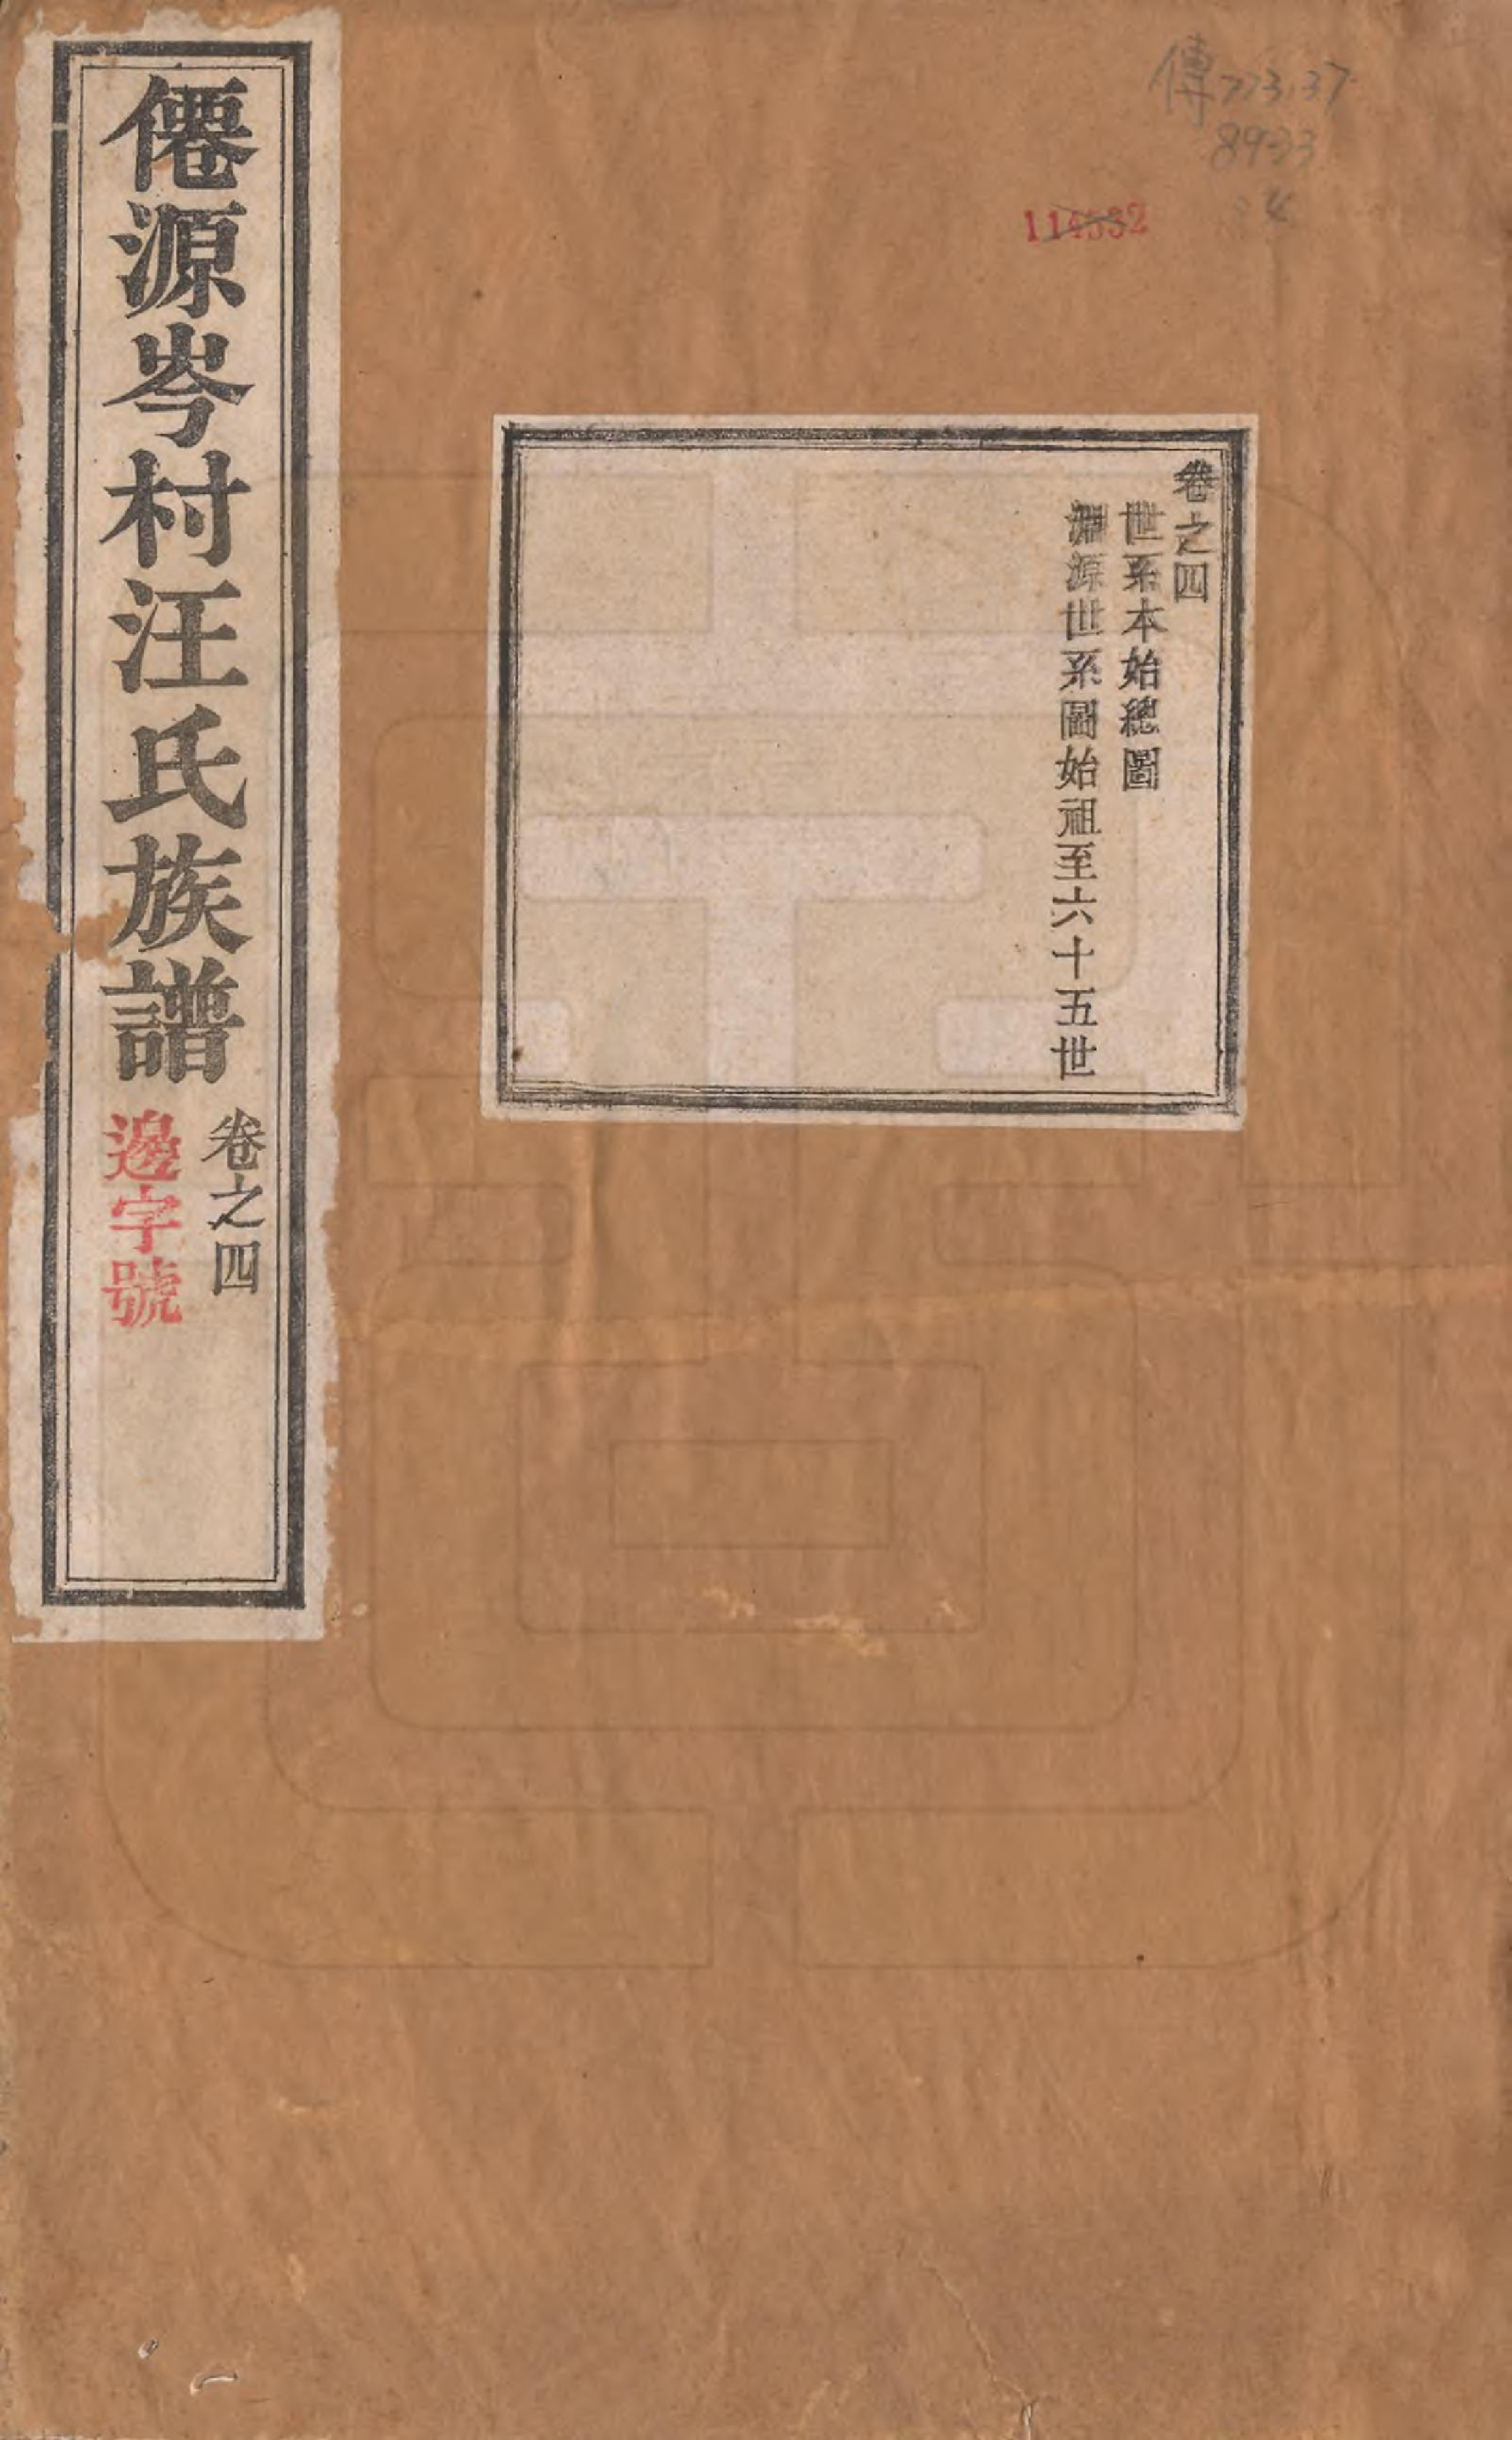 傳773.37
8933
:4
114532
卷之四
世系本始總圖
淵源世系圖始祖至六十五世
僊源岑村汪氏族譜
卷之四
邊字號